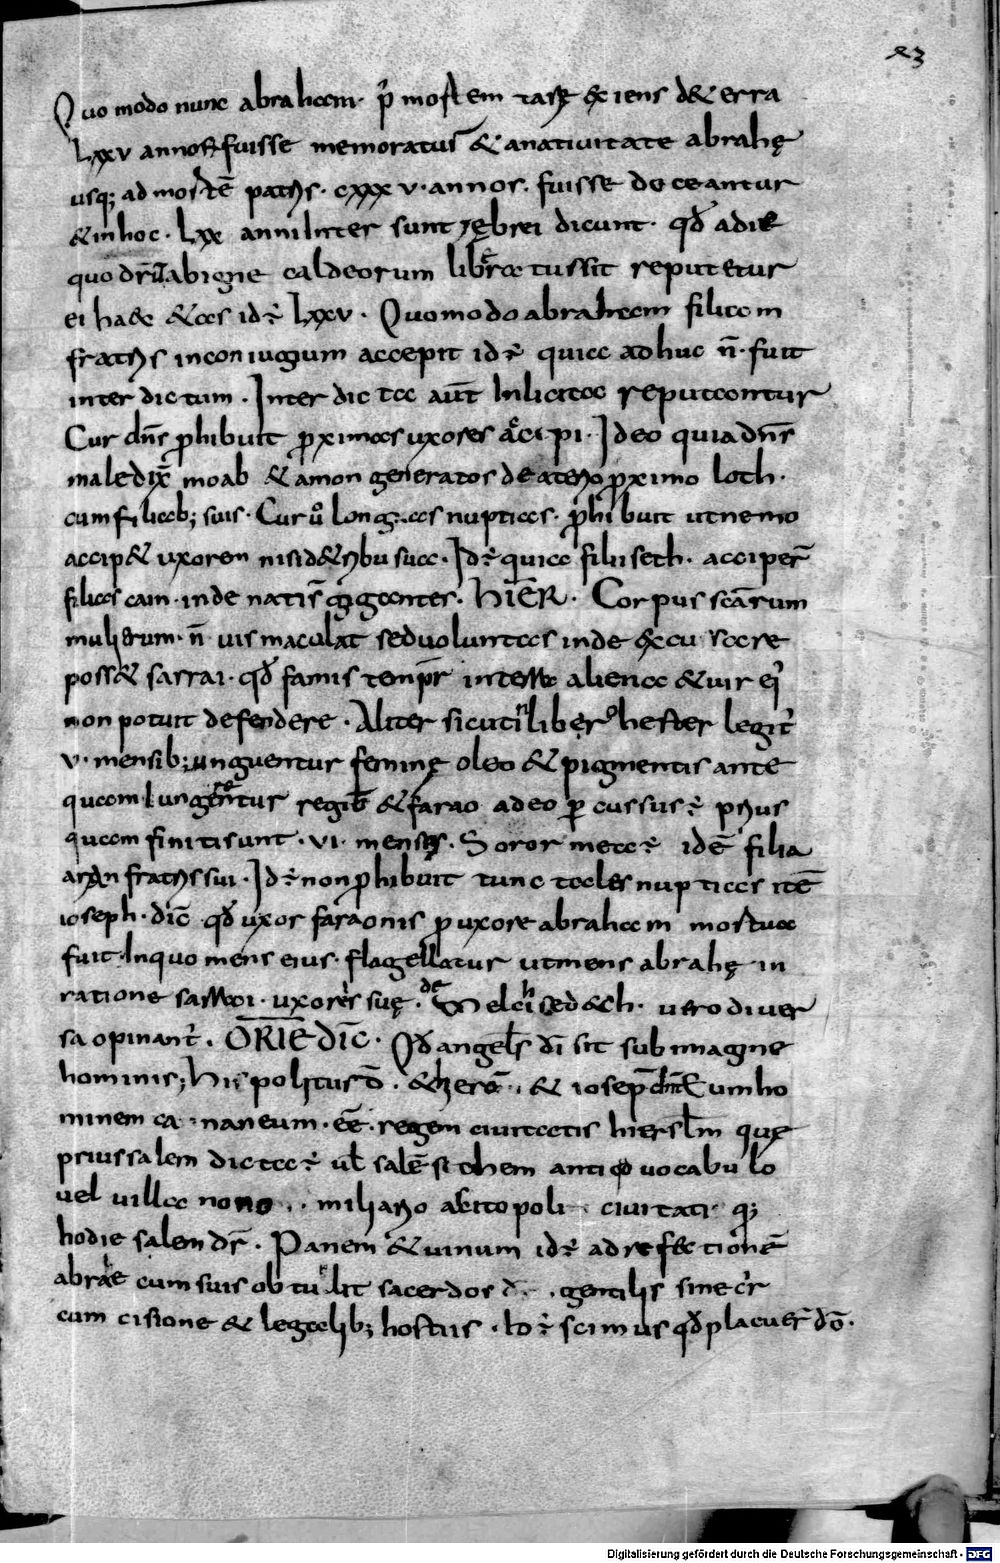 83
Quomodo nunc abraham· p᷒ mortem tarę exiens de terra
Lxxv annorū fuisse memoratur & a nativitate abrahę
usq; ad mortē patris· cxxxv· annos· fuisse doceantur
& in hoc· Lxx anni inter sunt ębrei dicunt· qđ a die
quo dn̄s ab igne caldeorum libera tus sit repute tur
ei haec &as id ē Lxxv· Quomodo abraham filiam
fratris in coniugium accepit id ē quia adhuc n̄ fuit
inter dictum· Inter dic ta aut̄ inlicita reputantur
Cur dn̄s p̄hibuit p̄ximas uxores accipi· Ideo quia dn̄s
maledix̄ moab & amon generatos de a p̄ximo loth·
cum filiab; suis· Cur u° longas nuptias· p̄hibuit ut nemo
accip& uxorem nisi d& tribu sua· Id ē quia filii seth· acciper̄
filias cain· inde natis gigantes· HIER· Corpus scārum
mulierum· n̄ vis maculat sed voluntas inde excusare
poss& sarrai· qđ famis tempr̄ in terra aliena & vir ei᷒
non potuit defendere· Aliter sicut in libro hester legit᷒
v· mensib; unguentur feminę oleo & pigmentis ante
quam iungerentur regib; & farao adeo percussus ē prius
quam finiti sunt· vi· menses· Soror mea ē idē filia
aran fratris sui· Id ē non p̄hibuit tunc tales nuptias itē
ioseph· dic̄ qđ uxor faraonis p uxore abraham mortua
fuit· In quo mens eius· flagellatur ut mens abrahę in
ratione sarrai· uxoris suę· de Melchisedech· vero diver
sa opinant᷒· ORIE DIC̄· Qđ angel's dī sit sub imagine
hominis; hippolitus· & & iosep Eum ho
minem cananeum· eē· regem civitatis hiersl̄m quę
prius salem dicta ē ul̄ salē sichem antiquo vocabulo
vel villa nono·· miliario a citopoli civitati· q;
hodie salem dr̄· Panem & vinum id ē ad refectionē
abrae cum suis obtulit sacerdos gentilis sine cir
cumcisione & legalib; hostiis· Id ē scimus qđ placuer̄ dō·
Digitalisierung gefördert durch die Deutsche Forschungsgemeinschaft - DFG